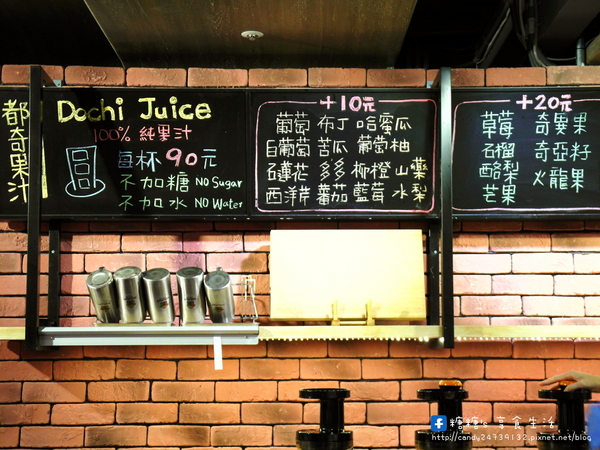 都奇果汁
Dochi Juice
100% 純果汁
每杯90元
不加糖 NO Sugar
不加水 NO Water
+10元
葡萄 布丁 哈蜜瓜
白葡萄 苦瓜 葡萄柚
石蓮花 多多 柳橙 山藥
西洋芹 蕃茄 藍莓 水梨
+20元
草莓 奇異果
石榴 奇亞籽
酪梨 火龍果
芒果
糖糖e享食生活
http://candy24739132.pixnet.net/blog